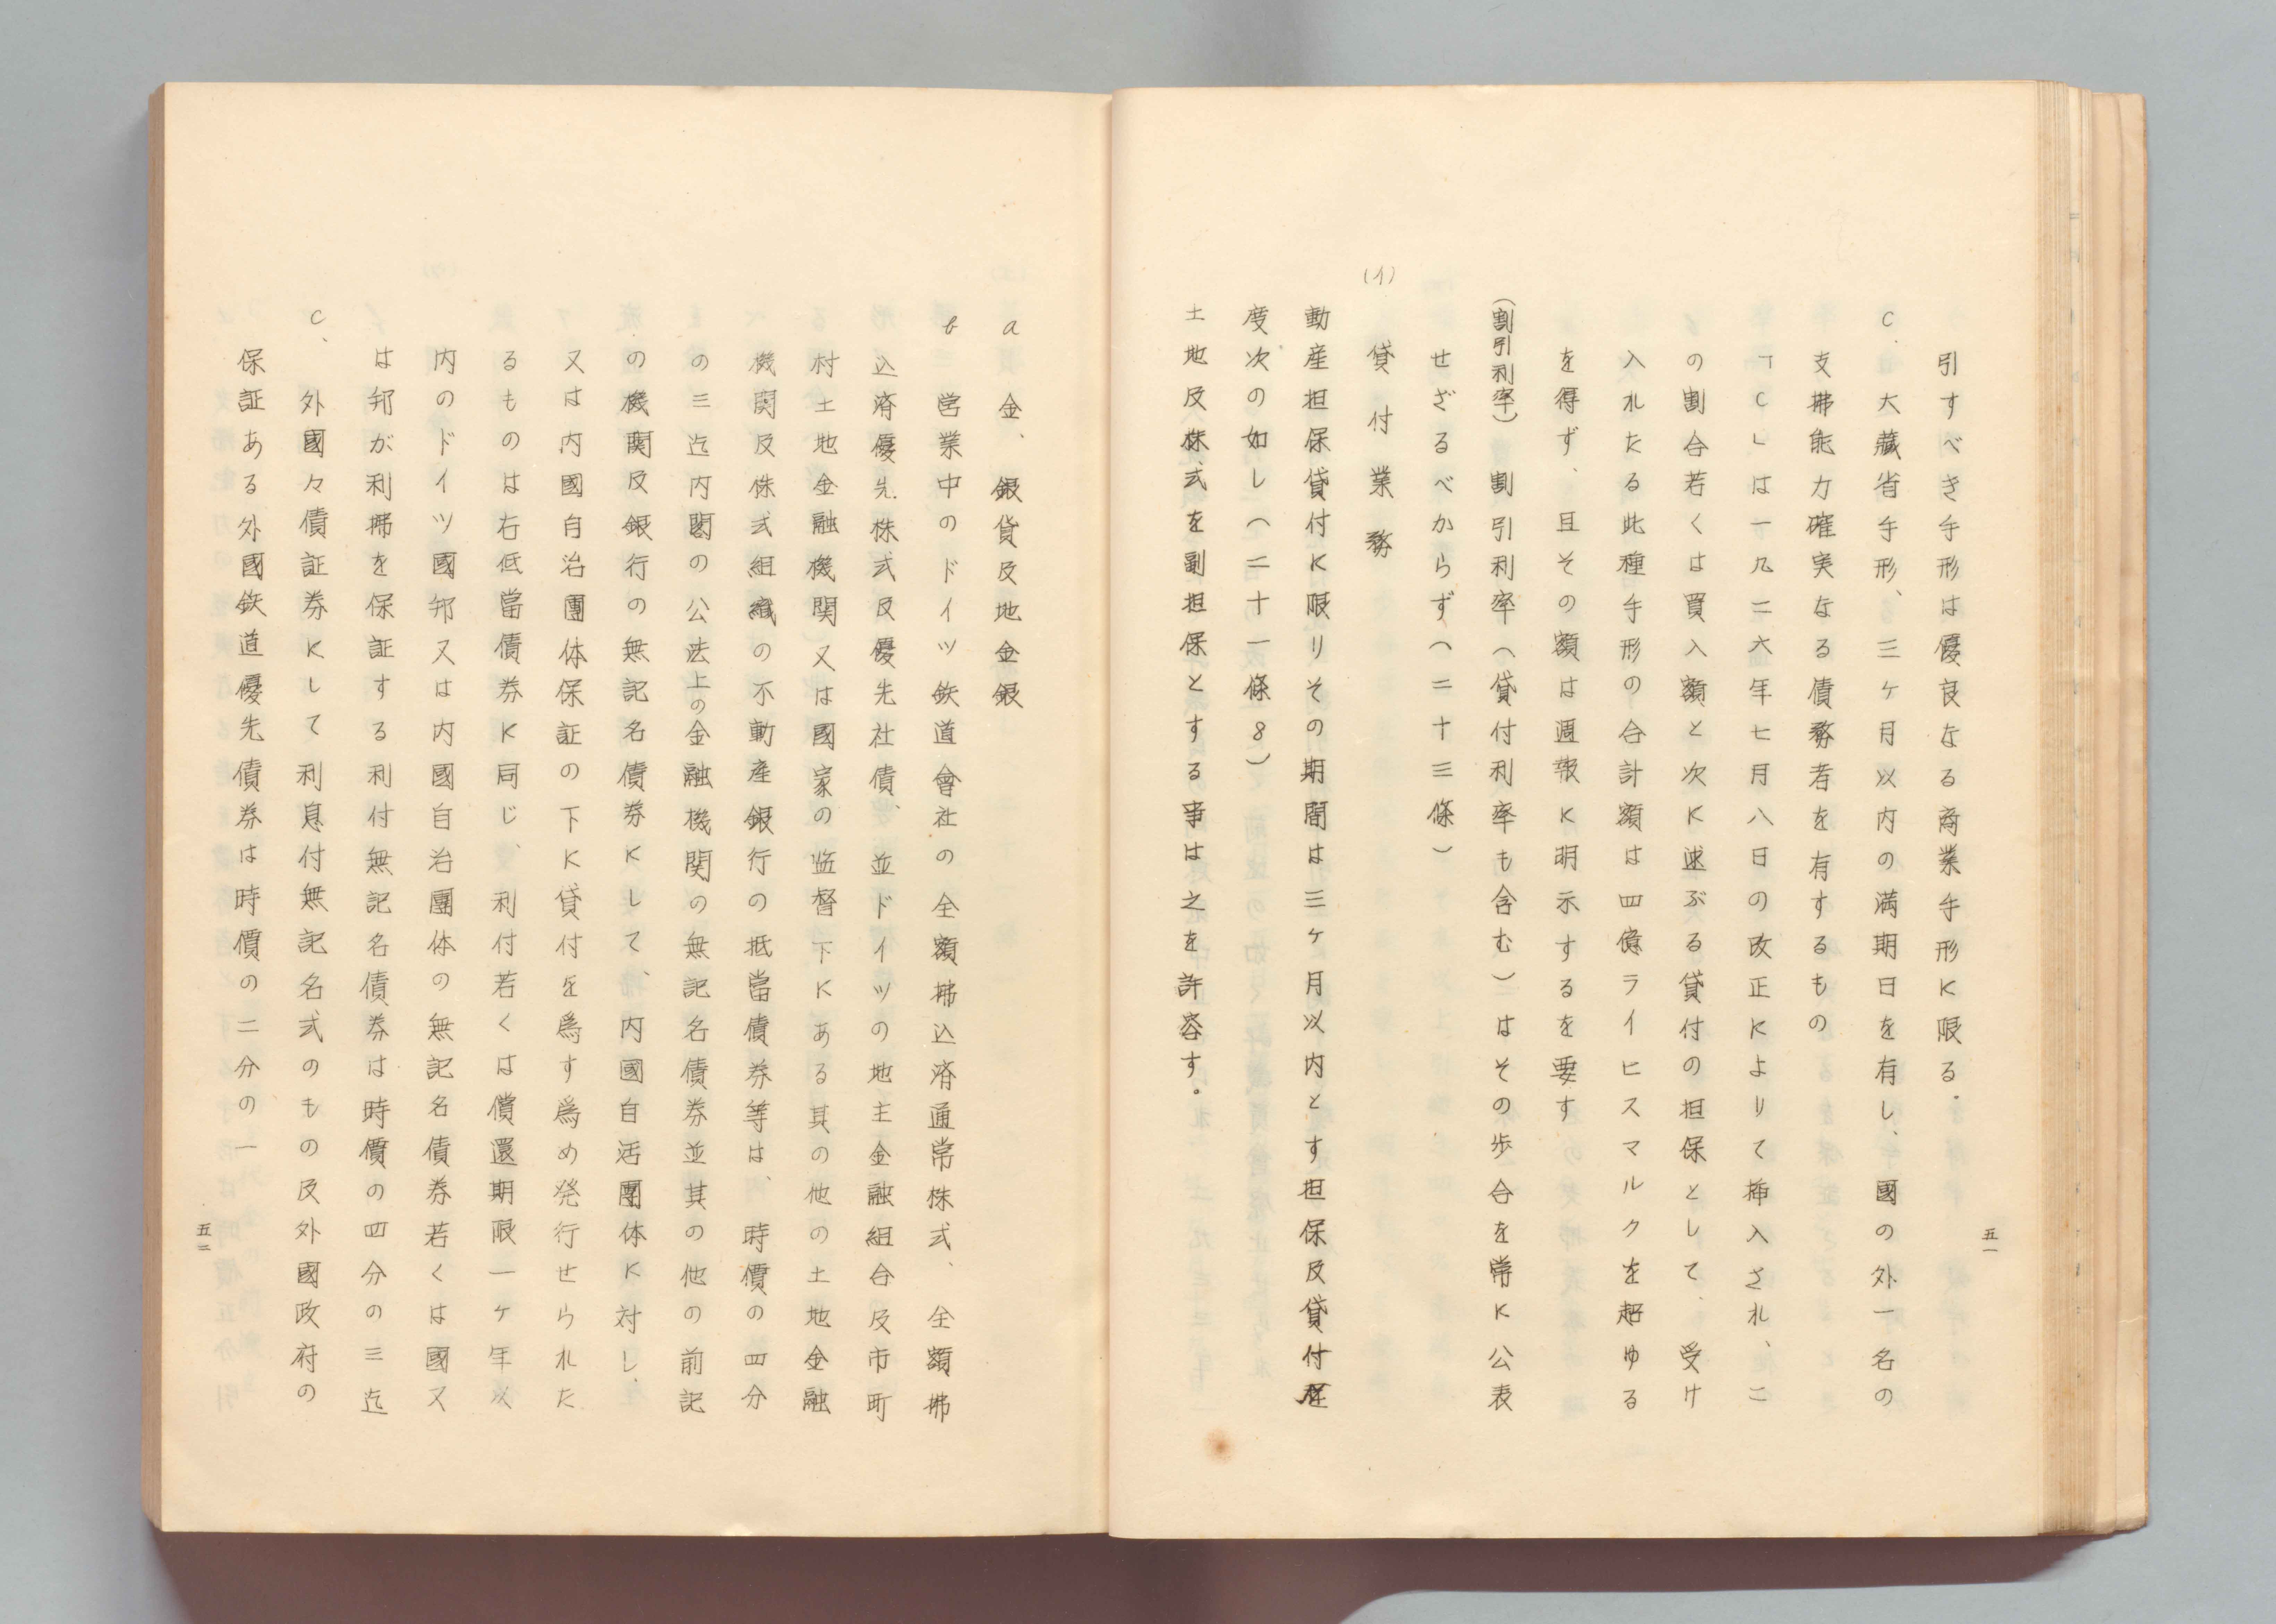 五一
引すべき手形は優良なる商業手形に限る.
C. 大藏省手形、三ヶ月以内の満期日を有し、國の外一名の
支拂能力確実なる債務者を有するもの
「C」は一九二六年七月八日の改正によりて挿入され、こ
の割合若くは買入額と次に述ぶる貸付の担保として、受け
入れたる此種手形の合計額は四億ライヒスマルクを超ゆる
を得ず、且その額は週報に明示するを要す
(割引利率) 割引利率(貸付利率も含む)はその歩合を常に公表
せざるべからず(二十三條)
(イ) 貸付業務
動産担保貸付に限りその期間は三ヶ月以内とす担保及貸付程
度次の如し(二十一條8)
土地及株式を副担保とする事は之を許容す。
a 金、銀貨及地金銀
b 営業中のドイツ鉄道會社の全額拂込済通常株式、全額拂
込済優先株式及優先社債、並ドイツの地主金融組合及市町
村土地金融機関又は國家の監督下にある其の他の土地金融
機関及株式組織の不動産銀行の抵當債券等は、時價の四分
の三迄内閣の公法上の金融機関の無記名債券並其の他の前記
の機関及銀行の無記名債券にして、内國自活團体に対し、
又は内國自治團体保証の下に貸付を爲す爲め発行せられた
るものは右低當債券に同じ、利付若くは償還期限一ヶ年以
内のドイツ國邦又は内國自治團体の無記名債券若くは國又
は邦が利拂を保証する利付無記名債券は時價の四分の三迄
C、外國々債証券にして利息付無記名式のもの及外國政府の
保証ある外國鉄道優先債券は時價の二分の一
五二